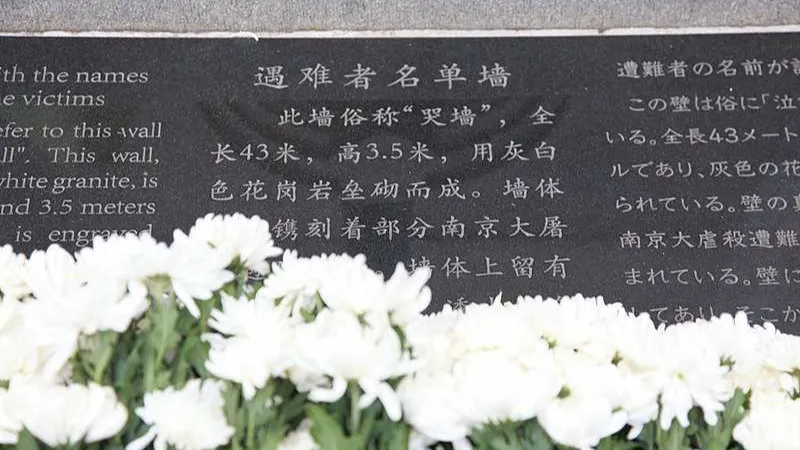 with the names
victims
refer to this wall
This wall,
white granite, is
and 3.5 meters
is engraved
遇难者名单墙
此墙俗称“哭墙”，全
长43米，高3.5米，用灰白
色花岗岩垒砌而成。墙体
镌刻着部分南京大屠
墙体上留有
遭難者の名前が
この壁は俗に「泣
いる。全長43メート
ルであり、灰色の花
られている。壁の
南京大虐殺遭難
まれている。壁に
してあり、そこか